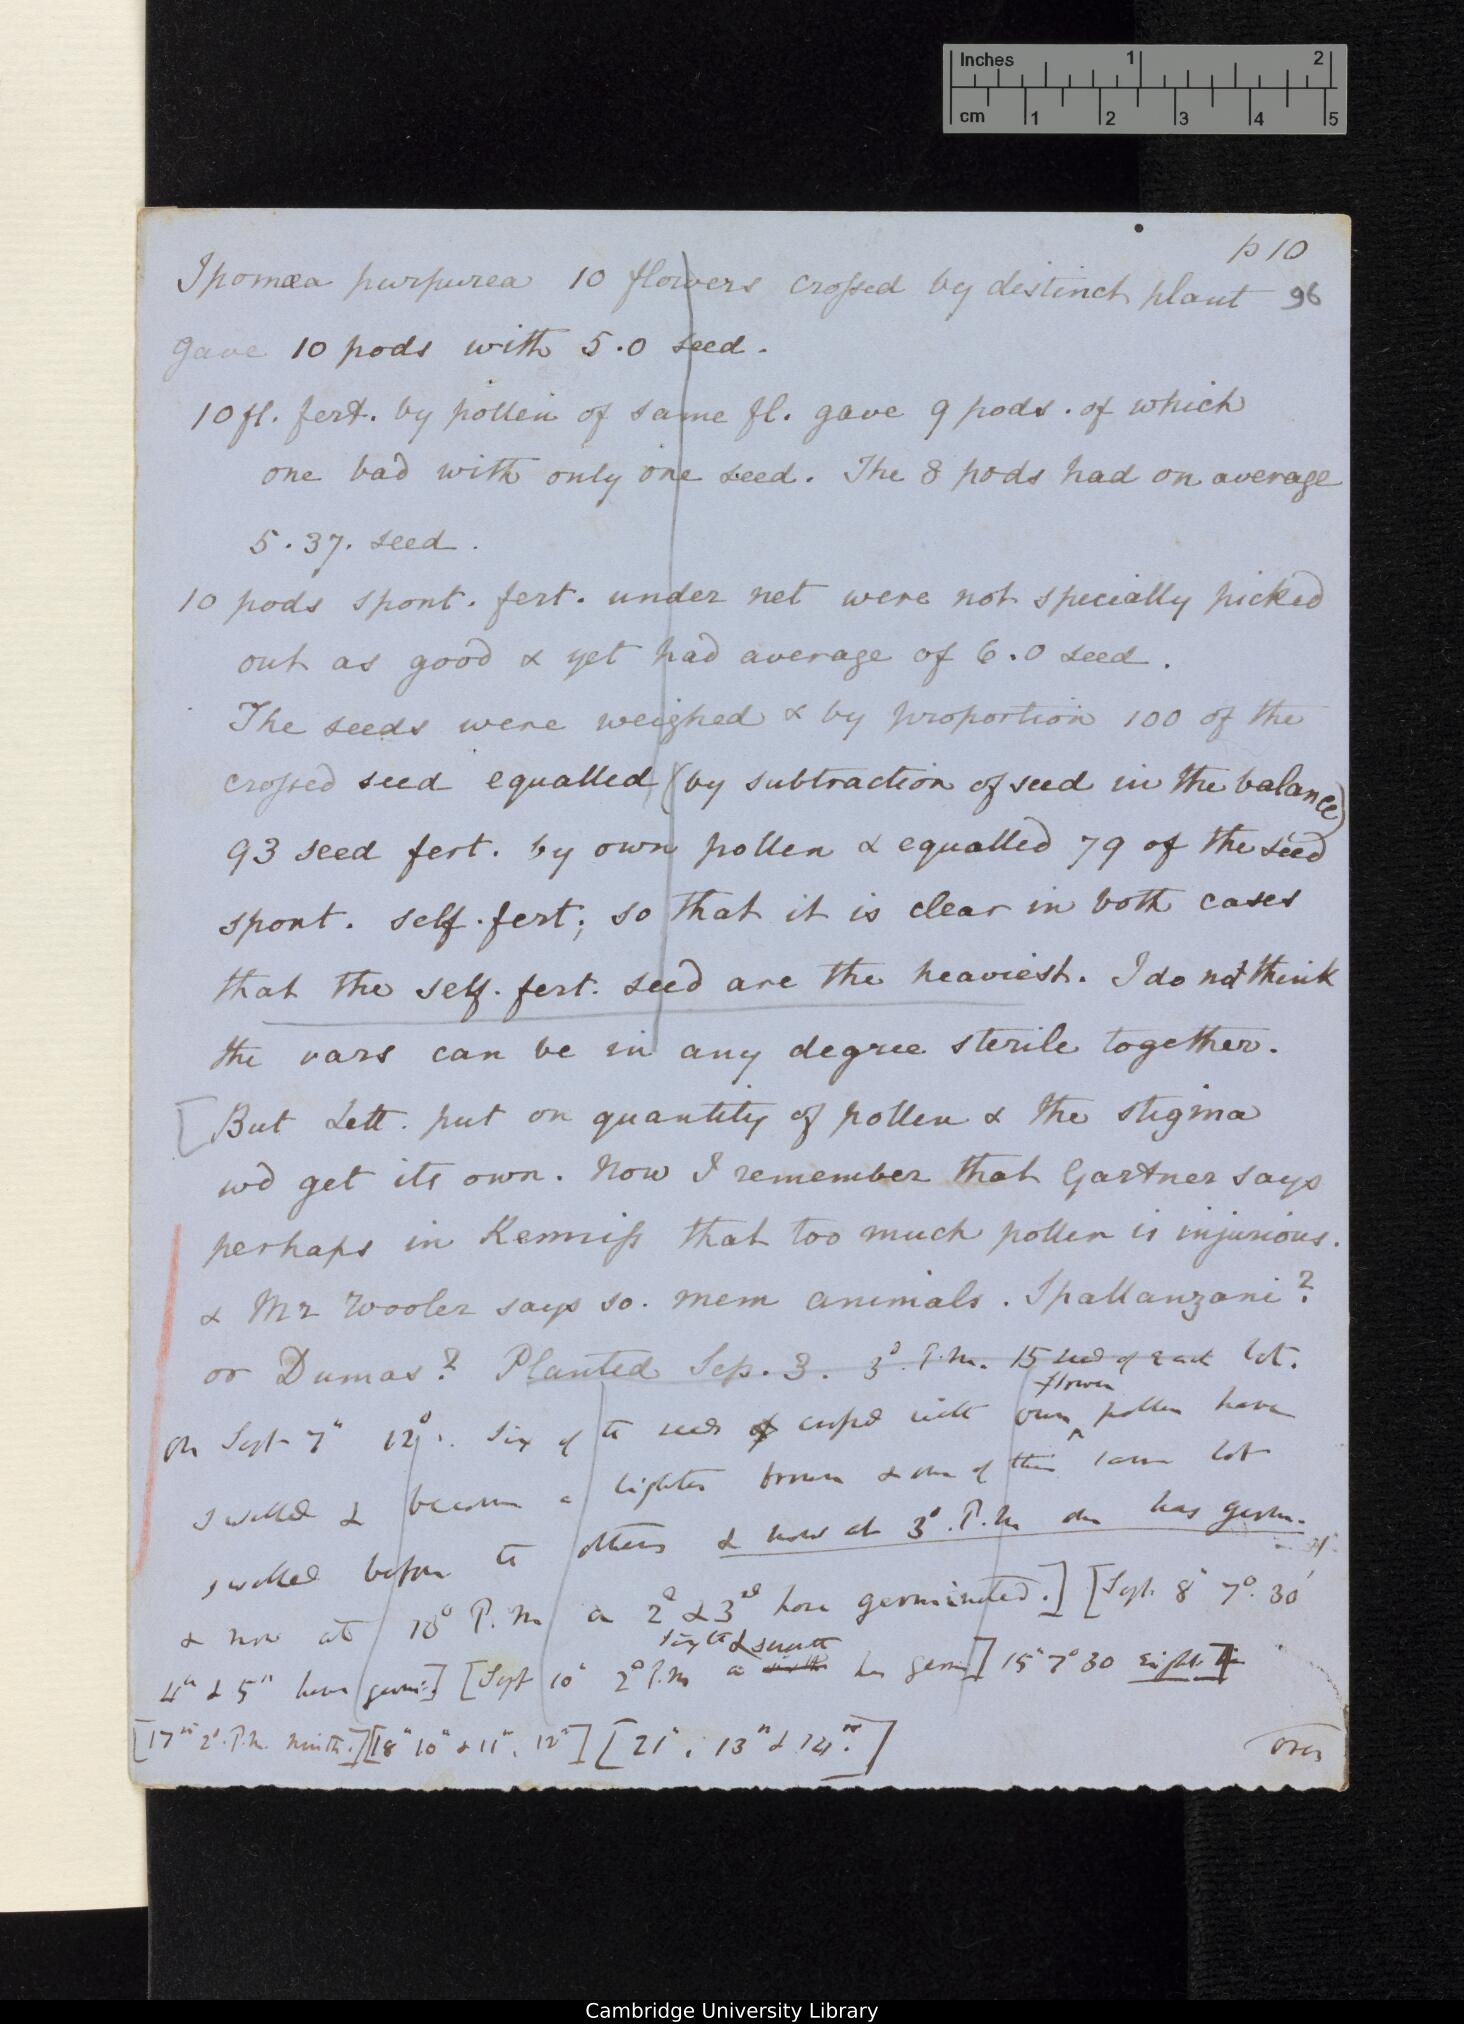 Inches 1 2
cm 1 2 3 4 5
p 10
Ipomæa purpurea 10 flowers crossed by distinct plant 96
gave 10 pods with 5.0 seed.
10 fl. fert. by pollen of same fl. gave 9 pods. of which
one bad with only one seed. The 8 pods had on average
5.37. seed.
10 pods spont. fert. under net were not specially picked
out as good & yet had average of 6.0 seed.
The seeds were weighed & by proportion 100 of the
crossed seed equalled (by subtraction of seed in the balance)
93 seed fert. by own pollen & equalled 79 of the seed
spont. self. fert; so that it is clear in both cases
that the self. fert. seed are the heaviest. I do not think
the vars can be in any degree sterile together.
[But Lett. put on quantity of pollen & the stigma
wd get its own. Now I remember that Gartner says
perhaps in Kenniss that too much pollen is injurious.
& Mr Wooler says so. mem animals. Spallanzani?
or Dumas? Planted Sep. 3. 3°. P.m. 15 seed of each lot.
flower
On Sept 7" 12°. Six of the seeds of with own pollen have
swelled & become a lighter brown & one of this same lot
swelled before the others & now at 3°. P.m one has germ.
& now at 10° P.m a 2d & 3rd have germinated.] [Sept. 8" 7°. 30'
sixth & seventh
4th & 5th have germ.] [Sept 10" 2° P.m a has germ] 15" 7° 30 eighth
[17th 2°. P.m. ninth.] [18" 10" & 11", 12"] [21", 13" & 14".]
over
Cambridge University Library